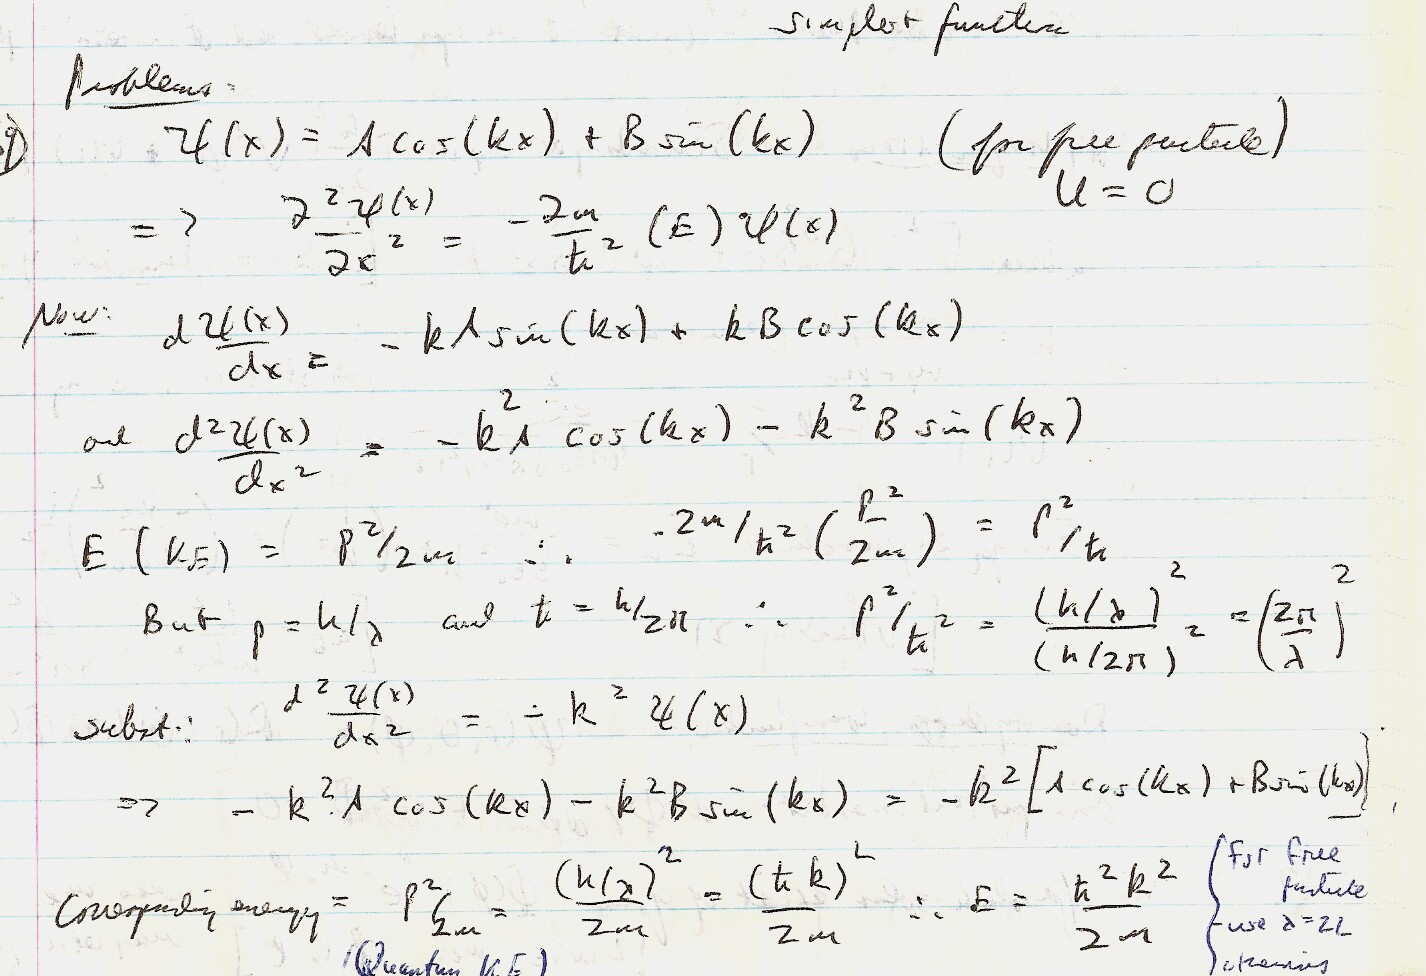 simplest function
Problems:
9) ψ(x) = A cos(kx) + B sin(kx) (for free particle)
U = 0
=> ∂²ψ(x)/∂x² = -2m/ħ² (E) ψ(x)
Now: dψ(x)/dx = - kA sin(kx) + kB cos(kx)
and d²ψ(x)/dx² = -k²A cos(kx) - k²B sin(kx)
E (KE) = p²/2m ∴ -2m/ħ² (p²/2m) = p²/ħ
But p = h/λ and ħ = h/2π ∴ p²/ħ² = (h/λ)²/(h/2π)² = (2π/λ)²
subst.: d²ψ(x)/dx² = -k² ψ(x)
=> - k²A cos(kx) - k²B sin(kx) = -k² [A cos(kx) + B sin(kx)]
Corresponding energy = p²/2m = (h/λ)²/2m = (ħk)²/2m ∴ E = ħ²k²/2m
(Quantum K.E)
{For free
particle
use λ = 2L